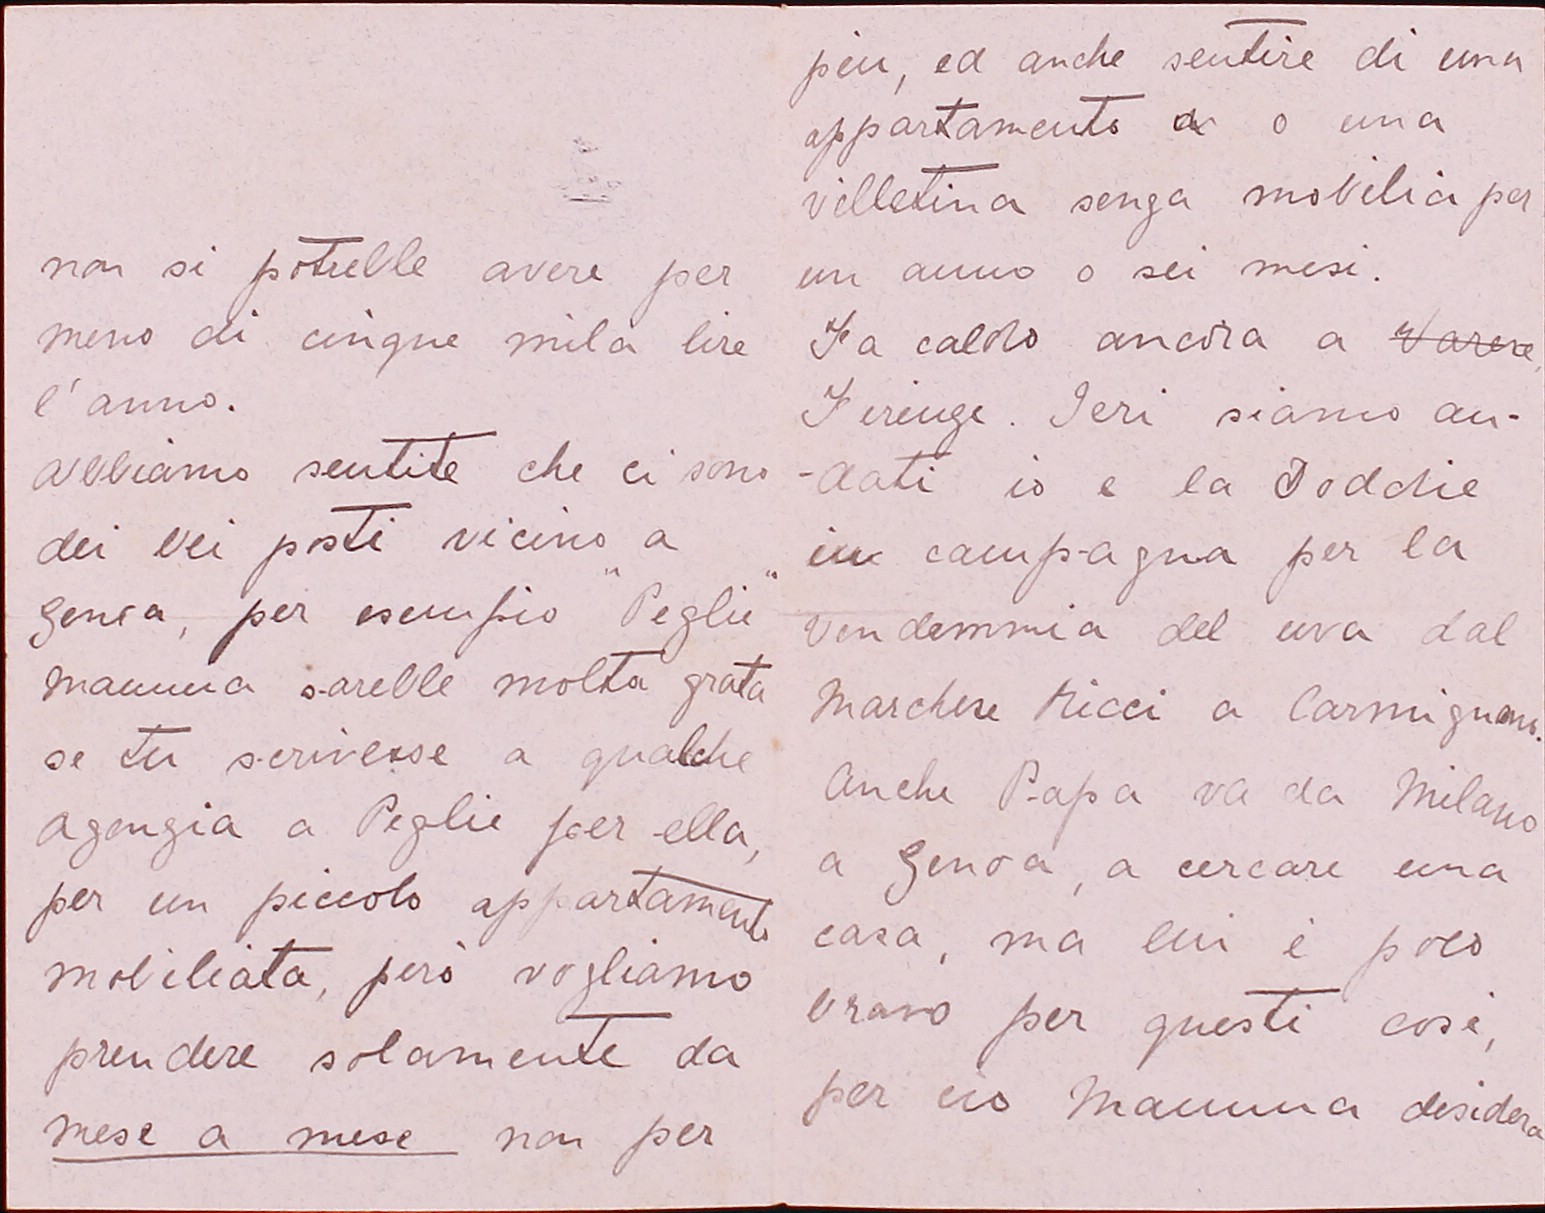 non si potrebbe avere per
meno di cinque mila lire
l'anno.
abbiamo sentite che ci sono
dei bei posti vicino a
Genoa, per esempio "Peglie"
Mamma sarebbe molta grata
se tu scrivesse a qualche
agenzia a Peglie per ella,
per un piccolo appartamento
mobiliata, però vogliamo
prendere solamente da
mese a mese non per
piu, ed anche sentire di una
appartamento a o una
villetina senza mobilia per
un anno o sei mesi.
Fa caldo ancora a Varese,
Firenze. Ieri siamo an-
-dati io e la Doddie
in campagna per la
vendemmia del uva dal
Marchese Ricci a Carmignano.
Anche Papa va da Milano
a Genoa, a cercare una
casa, ma lui è poco
bravo per questi cosi,
per cio Mamma desidera